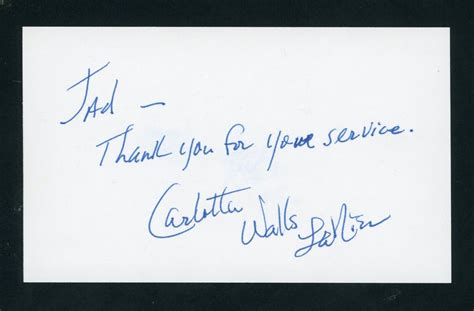 Jad —
Thank you for your service.
Carlotta Walls LaNier